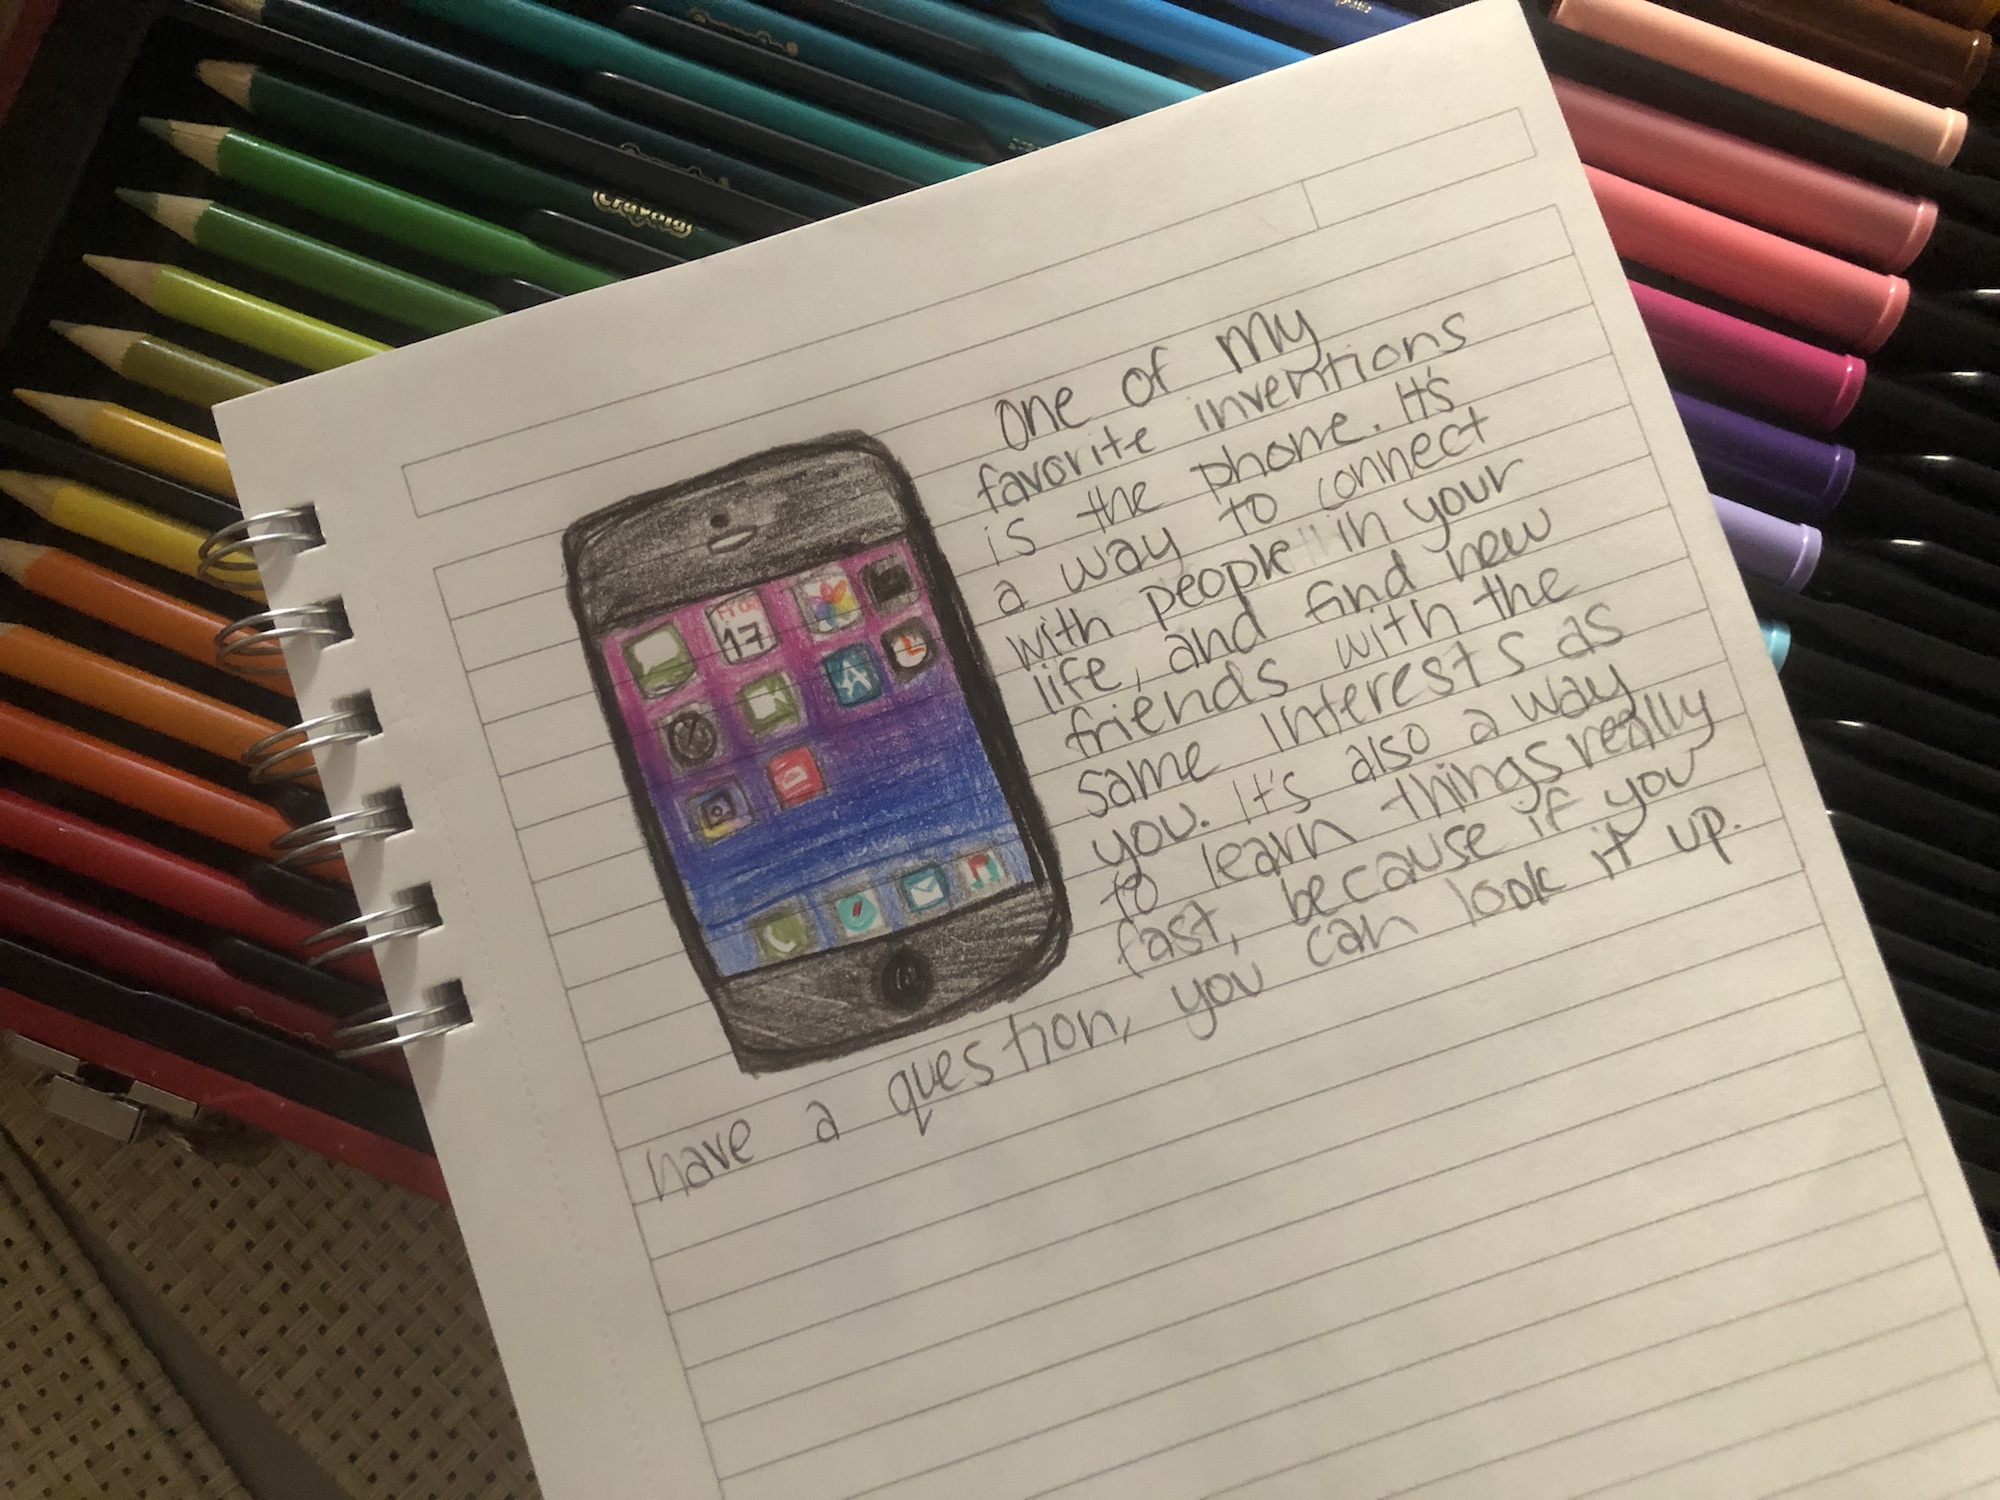 Crayola
Fri
17
one of my
favorite inventions
is the phone. It's
a way to connect
with people in your
life, and find new
friends with the
same interests as
you. It's also a way
to learn things really
fast, because if you
have a question, you can look it up.